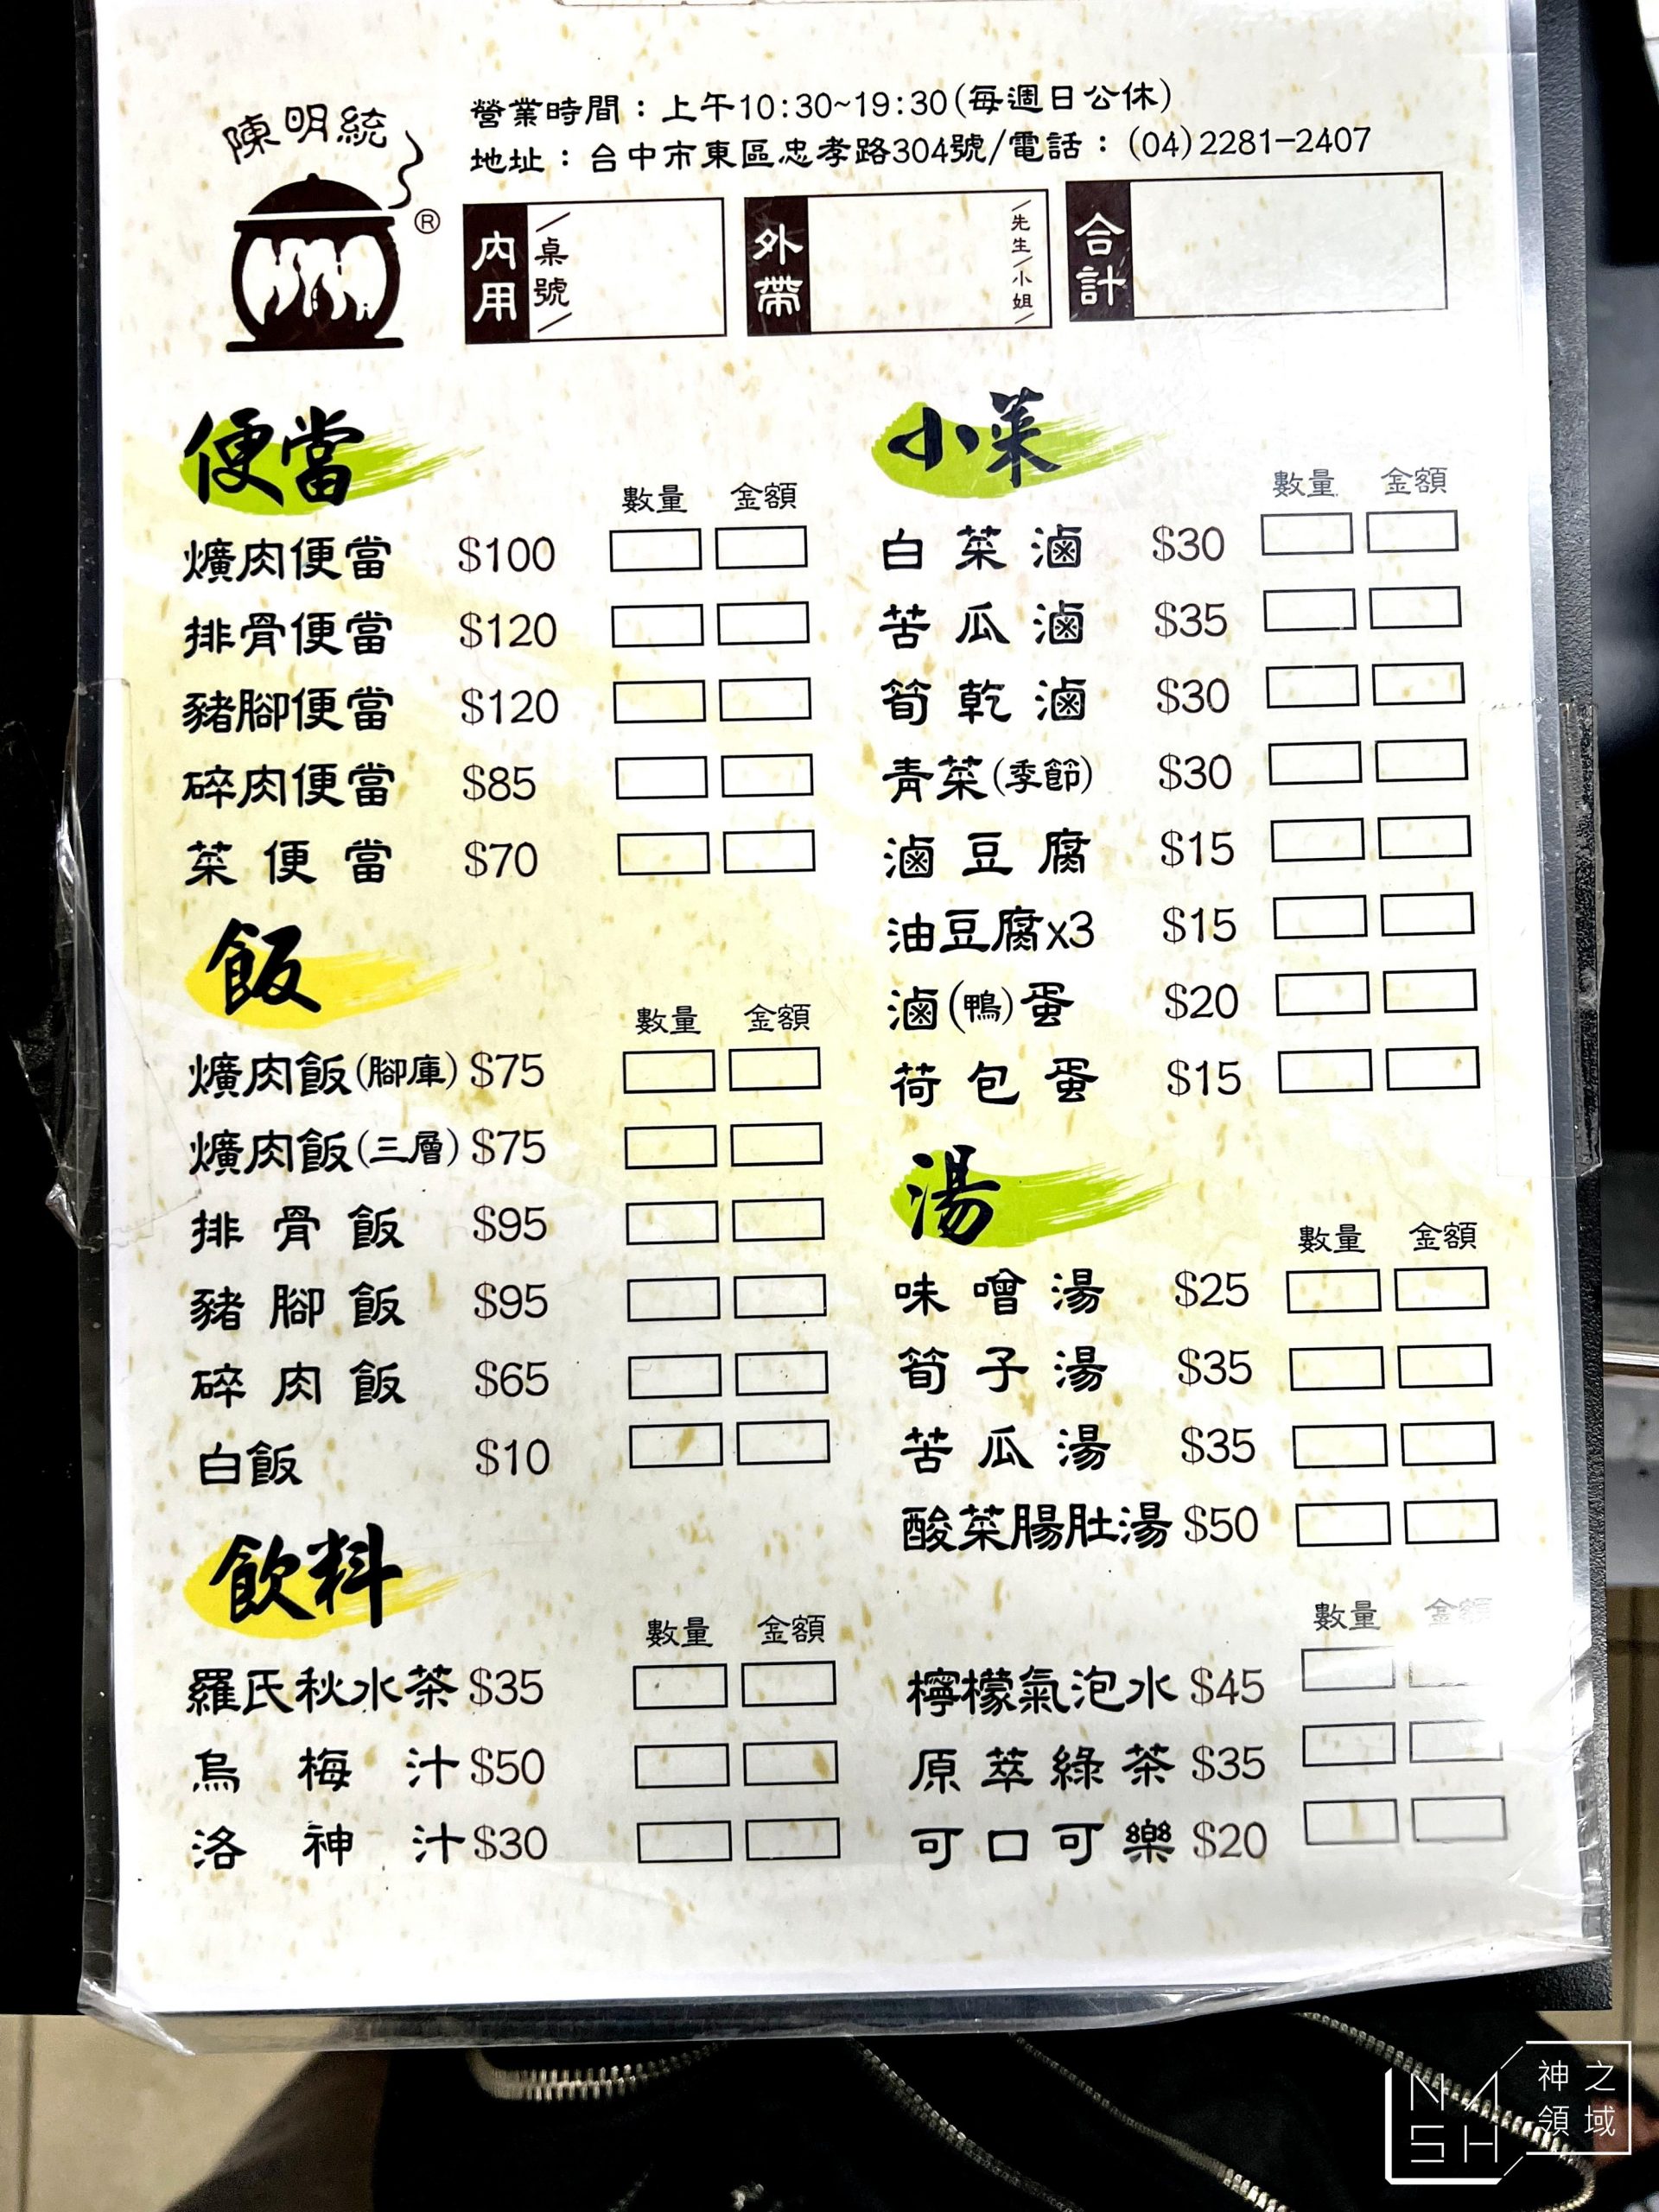 陳明統
®
營業時間：上午10:30~19:30(每週日公休)
地址：台中市東區忠孝路304號/電話：(04)2281-2407
內用 /桌號/
外帶 /先生/小姐/
合計
便當
數量 金額
爌肉便當 $100
排骨便當 $120
豬腳便當 $120
碎肉便當 $85
菜便當 $70
飯
數量 金額
爌肉飯(腳庫) $75
爌肉飯(三層) $75
排骨飯 $95
豬腳飯 $95
碎肉飯 $65
白飯 $10
小菜
數量 金額
白菜滷 $30
苦瓜滷 $35
筍乾滷 $30
青菜(季節) $30
滷豆腐 $15
油豆腐x3 $15
滷(鴨)蛋 $20
荷包蛋 $15
湯
數量 金額
味噌湯 $25
筍子湯 $35
苦瓜湯 $35
酸菜腸肚湯 $50
飲料
數量 金額
羅氏秋水茶 $35
烏梅汁 $50
洛神汁 $30
數量 金額
檸檬氣泡水 $45
原萃綠茶 $35
可口可樂 $20
NASH
神之領域